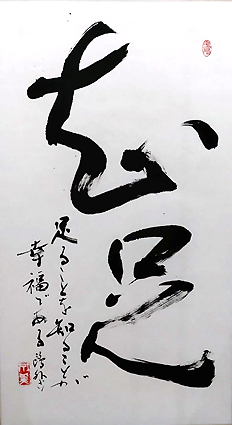 知足
足ることを知ることが
幸福である